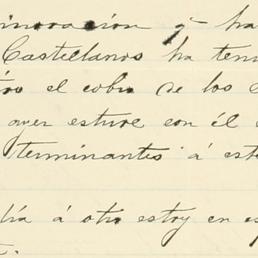 inoración y ha
Castellanos ha ten
el cobro de los
ayer estuve con él
terminantes á est
día á otro estoy en es